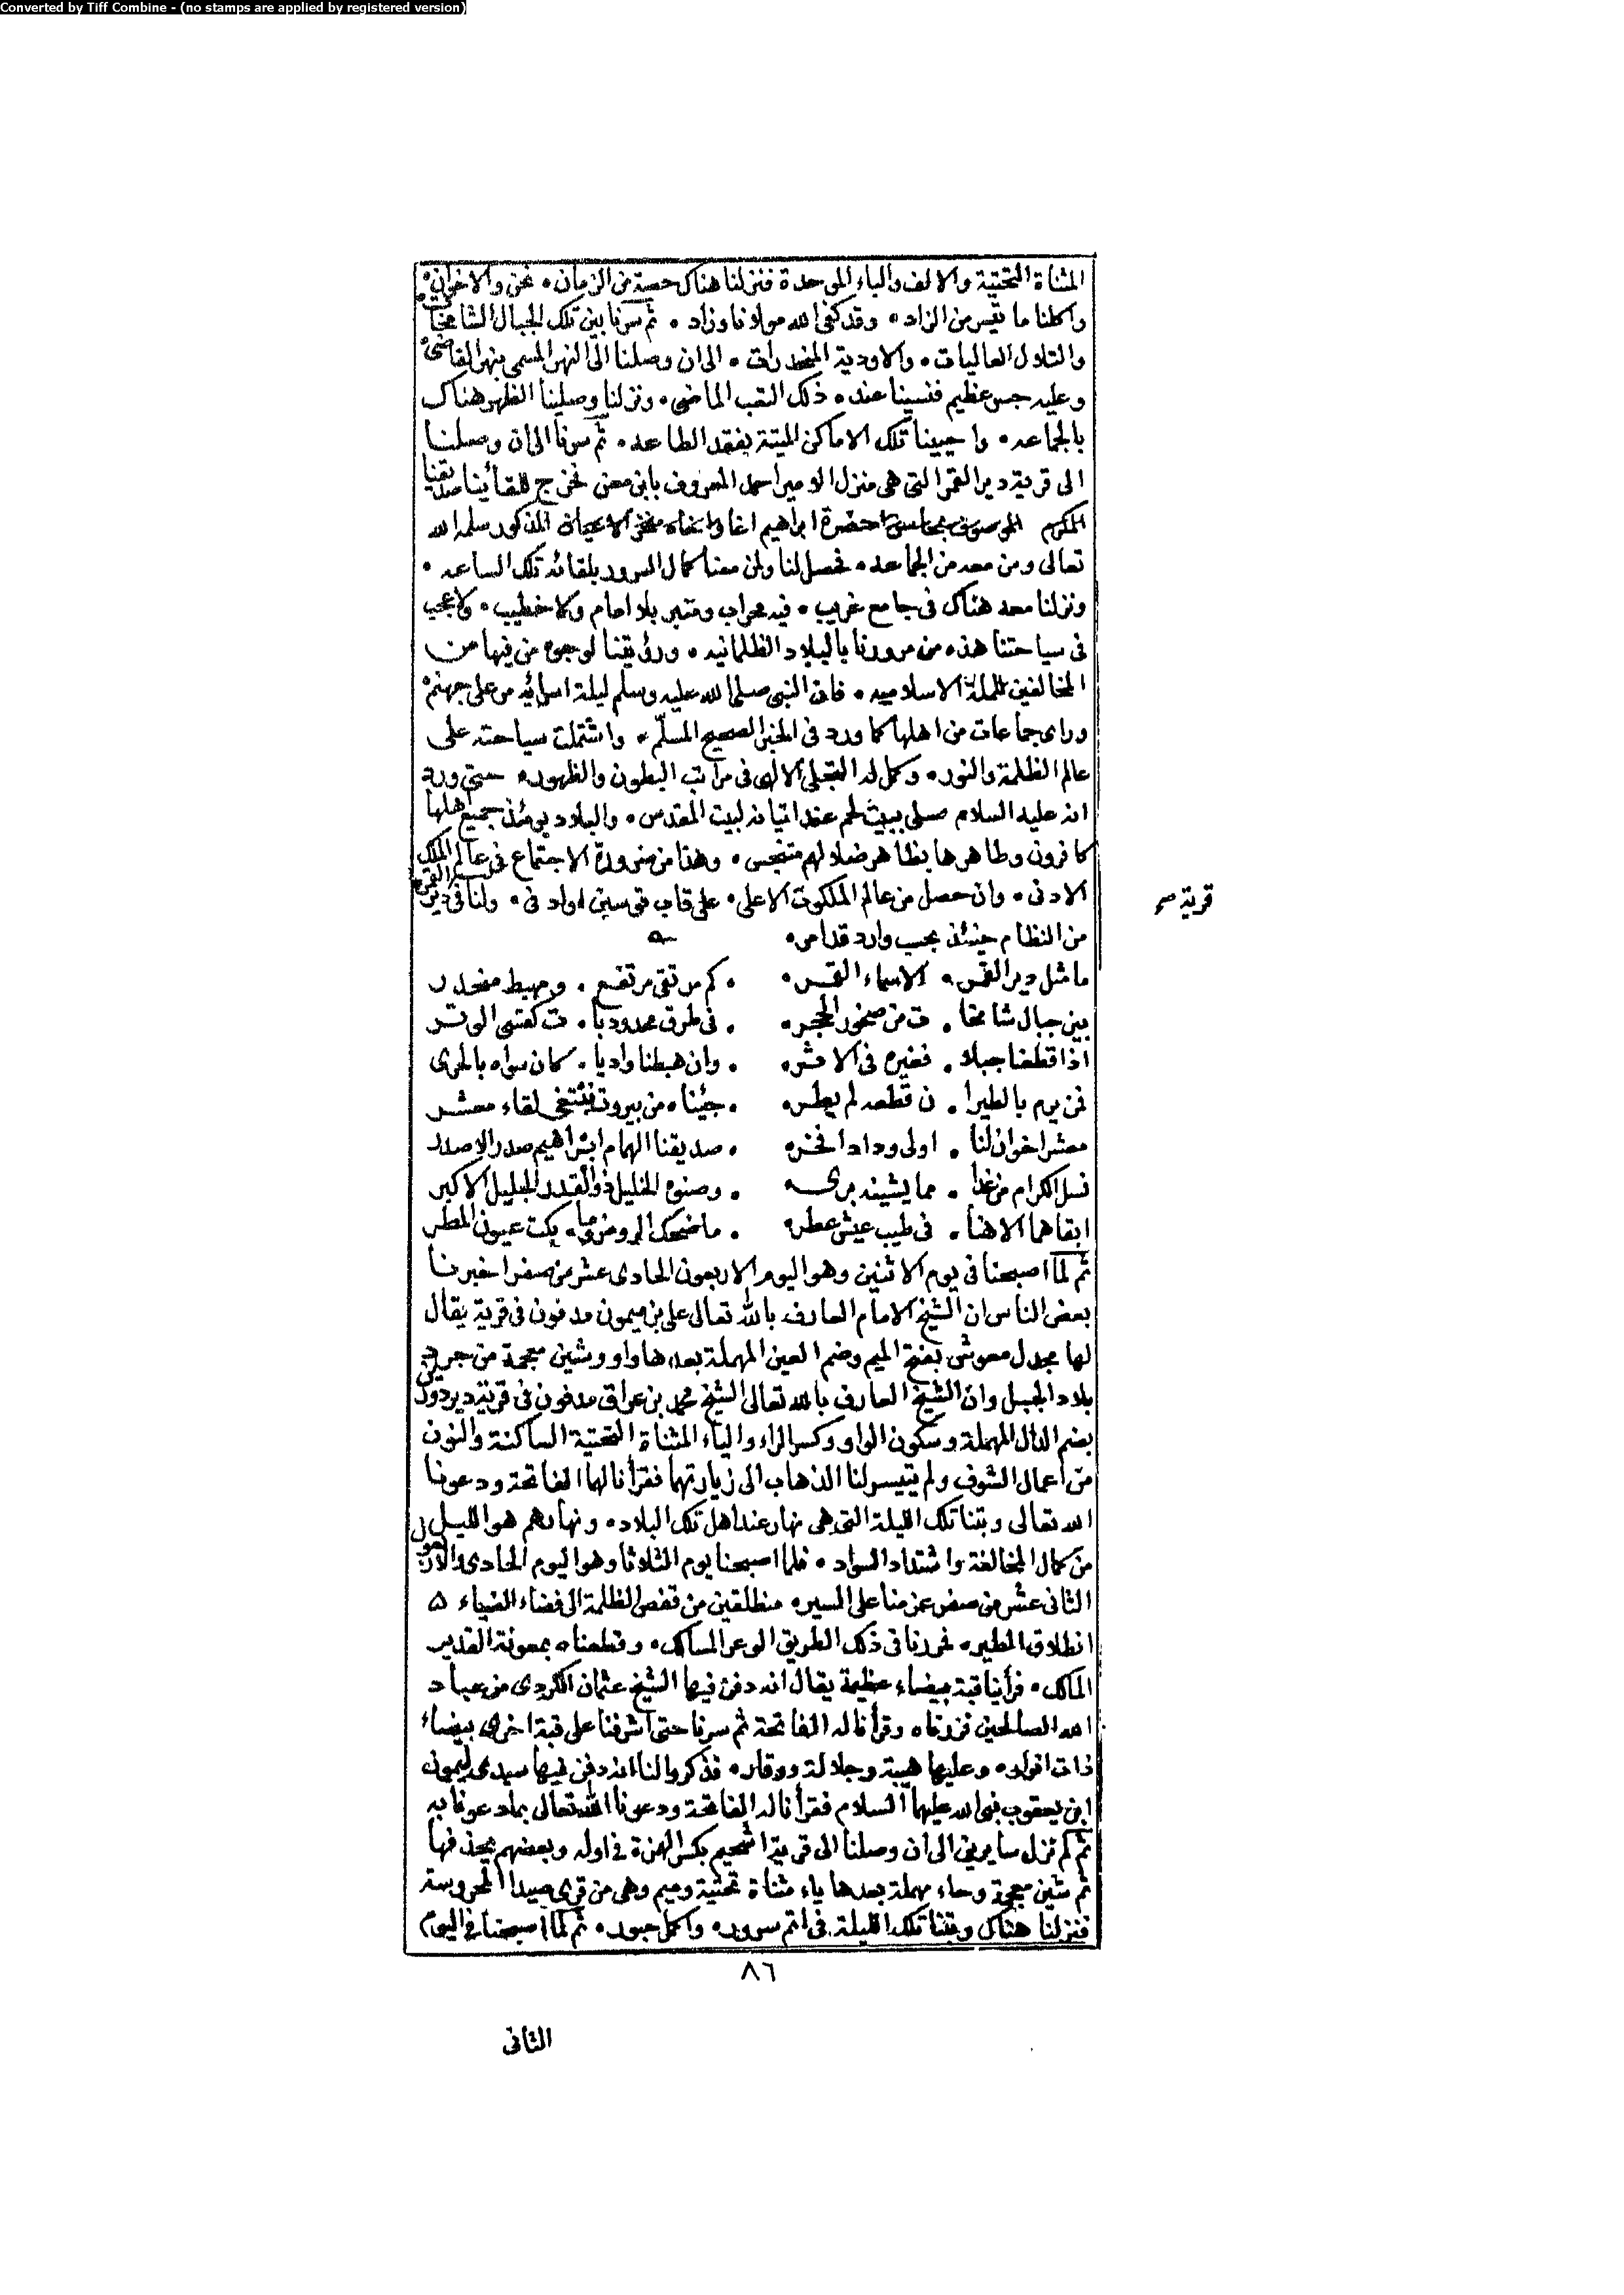 Converted by Tiff Combine - (no stamps are applied by registered version)
المثناة التحتية والالف والباء الموحدة فنزلنا هناك حصة من الزمان ٠ نحن والاخوان ٠
واكلنا ما تيسر من الزاد ٠ وقد كفى الله مولانا وزاد ٠ ثم سرنا بين تلك الجبال الشامخات
والتلول العاليات ٠ والاودية المنحدرات ٠ الى ان وصلنا الى النهر المسمى بنهر القاضى
وعليه جسر عظيم فنسينا عنده ذلك التعب الماضى ٠ ونزلنا وصلينا الظهر هناك
بالجماعه ٠ واحيينا تلك الاماكن الميتة بفقد الطاعه ٠ ثم سرنا الى ان وصلنا
الى قرية دير القمر التى هى منزل الامير احمد المعروف بابن معن فخرج للقائنا صديقنا
المكرم الموصوف بمحاسن حضرة ابراهيم اغا وابناه مفخر الاعيان المذكور سلمه الله
تعالى ومن معه من الجماعه ٠ فحصل لنا ولمن معنا كمال السرور بلقائه تلك الساعه ٠
ونزلنا معه هناك فى جامع غريب ٠ فيه محراب ومنبر بلا امام ولا خطيب ٠ ولا عجب
فى سياحتنا هذه من مرورنا بالبلاد الظلمانيه ٠ ورؤيتنا لوجوه من فيها من
المخالفين للملة الاسلاميه ٠ فان النبى صلى الله عليه وسلم ليلة اسرائه مر على جهنم
وراى جماعات من اهلها كما ورد فى الخبر الصحيح المسلّم ٠ واشتملت سياحته على
عالم الظلمة والنور ٠ وكمل له التجلى الالهى فى مراتب البطون والظهور ٠ حتى ورد
انه عليه السلام صلى ببيت لحم عند اتيانه لبيت المقدس ٠ والبلاد يومئذ جميع اهلها
كافرون وطاهرها بظاهر ضلالهم متنجس ٠ وهذا من ضرورة الاجتماع فى عالم الملك
الادنى ٠ وان حصل من عالم الملكوت الاعلى ٠ على قاب قوسين او ادنى ٠ ولنا فى دير القمر
قرية صح
من النظام حينئذ بحسب وارد قدامر ٠
ما مثل دير القمر ٠ الاسماء القمر ٠ كم مرتقى مرتفع ٠ ومهبط منحدر
بين جبال شامخا ٠ ت من صخور الحجر ٠ فى طرق محدودبا ٠ ت كقسى الوتر
اذا قطعنا جبلا ٠ فغيره فى الاثر ٠ وان هبطنا واديا ٠ كان سواه بالحرى
فمن يرم بالطيرا ٠ ن قطعه لم يطر ٠ جئناه من بيروت نبتغى لقاء معشر
معشر اخوان لنا ٠ اولى وداد افخر ٠ صديقنا الهمام ابراهيم صدر الاصدر
نسل الكرام من غدا ٠ مما يشينه برى ٠ وصنوه الخليل ذو القدر الجليل الاكبر
ابقاهما الا هنا ٠ فى طيب عيش عطر ٠ ما ضحك الروض وما ٠ بكت عيون المطر
ثم لما اصبحنا فى يوم الاثنين وهو اليوم الاربعون الحادى عشر من صفر اخبرنا
بعض الناس ان الشيخ الامام العارف بالله تعالى على بن ميمون مدفون فى قرية يقال
لها مجدل معوش بفتح الميم وضم العين المهملة بعدها واو وشين معجمة من جرد
بلاد الجبل وان الشيخ العارف بالله تعالى الشيخ محمد بن عراق مدفون فى قرية دير دورين
بضم الدال المهملة وسكون الواو وكسر الراء والياء المثناة التحتية الساكنة والنون
من اعمال الشوف ولم يتيسر لنا الذهاب الى زيارتهما فقرأنا لهما الفاتحة ودعونا
الله تعالى وبتنا تلك الليلة التى هى نهار عند اهل تلك البلاد ٠ ونهارهم هو الليل
من كمال المخالفة واشتداد السواد ٠ فلما اصبحنا يوم الثلاثا وهو اليوم الحادى والاربعون
الثانى عشر من صفر عزمنا على السير ٠ منطلقين من قفص الظلمة الى فضاء الضياء
انطلاق الطير ٠ فمررنا فى ذلك الطريق الوعر المسالك ٠ وقطعناه بمعونة القدير
المالك ٠ فرأينا قبة بيضاء عظيمة يقال انه دفن فيها الشيخ عثمان الكردى من عباد
الله الصالحين فزرناه وقرأنا له الفاتحة ثم سرنا حتى اشرفنا على قبة اخرى بيضاء
ذات انوار ٠ وعليها هيبة وجلالة ووقار ٠ فذكروا لنا انه دفن فيها سيدى ليمون
ابن يعقوب نبى الله عليهما السلام فقرأنا له الفاتحة ودعونا الله تعالى بما دعونا به
ثم لم نزل سايرين الى ان وصلنا الى قرية اشحيم بكسر الهمزة فى اوله وبعضهم يحذفها
ثم شين معجمة وحاء مهملة بعدها ياء مثناة تحتية وميم وهى من قرى صيدا المحروسة
فنزلنا هناك وبتنا تلك الليلة فى اتم سرور ٠ واكمل حبور ٠ ثم لما اصبحنا فى اليوم
٨٦
الثانى